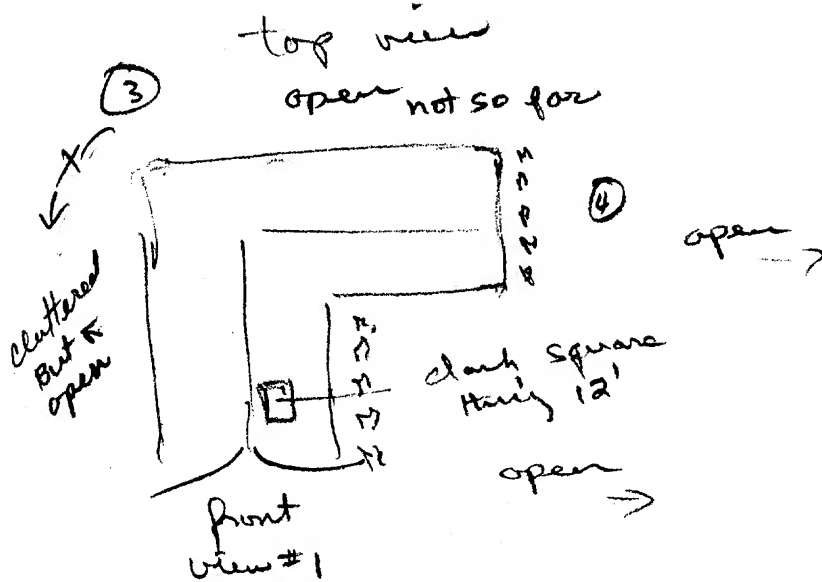 top view
3
open not so far
4
open
cluttered
But
open
dark square
thing 12'
open
front
view #1